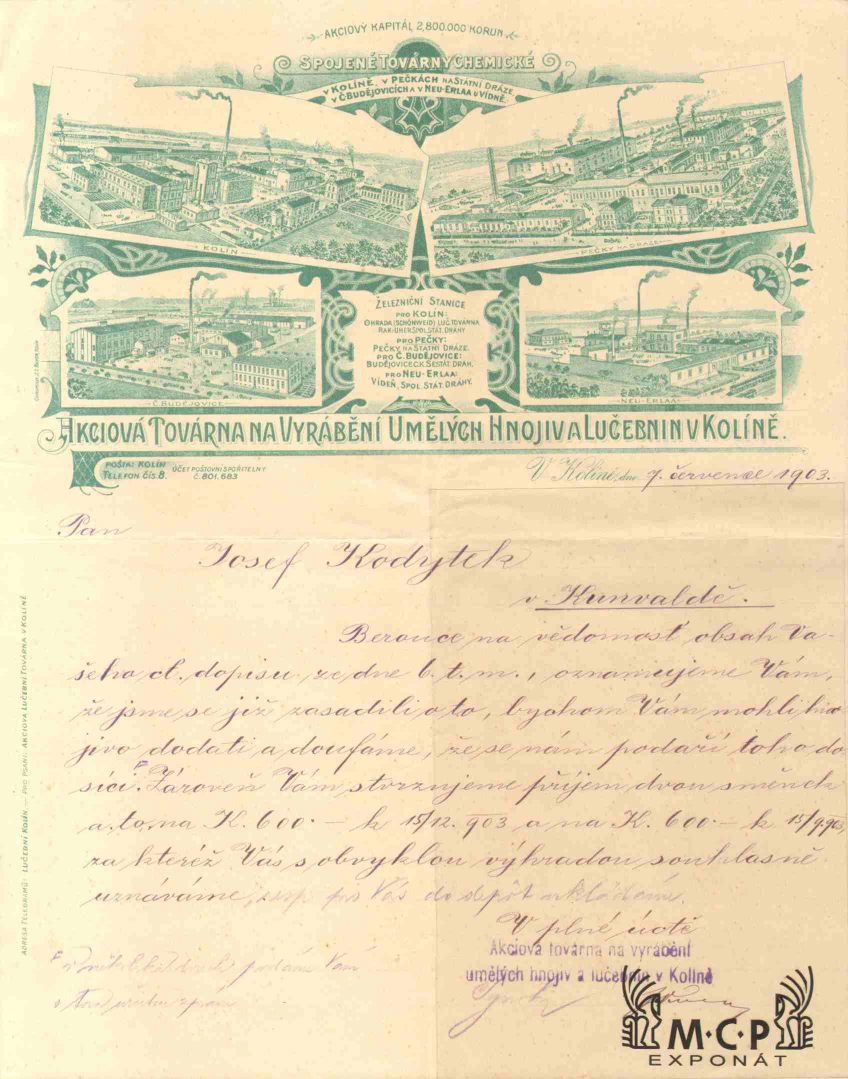 AKCIOVÝ KAPITÁL 2,800.000 KORUN
SPOJENÉ TOVÁRNY CHEMICKÉ
V KOLÍNĚ, V PEČKÁCH NA STÁTNÍ DRÁZE,
V Č. BUDĚJOVICÍCH A V NEU-ERLAA U VÍDNĚ.
KOLÍN
PEČKY NA DRÁZE
ŽELEZNIČNÍ STANICE
PRO KOLÍN:
OHRADA (SCHÖNWEID) LUČ. TOVÁRNA
RAK. UHER. SPOL. STÁT. DRÁHY
PRO PEČKY:
PEČKY NA STÁTNÍ DRÁZE.
PRO Č. BUDĚJOVICE:
BUDĚJOVICE C.K. SESTÁT. DRAH.
PRO NEU-ERLAA:
VÍDEŇ, SPOL. STÁT. DRAHY.
Č. BUDĚJOVICE
NEU-ERLAA
AKCIOVÁ TOVÁRNA NA VYRÁBĚNÍ UMĚLÝCH HNOJIV A LUČEBNIN V KOLÍNĚ.
POŠTA: KOLÍN
TELEFON ČÍS. 8.
ÚČET POŠTOVNÍ SPOŘITELNY
Č. 801.683
V Kolíně, dne 7. července 1903.
Pan
Josef Kodytek
v Kunvaldě.
Berouce na vědomosť obsah Va-
šeho ct. dopisu ze dne 6. t. m., oznamujeme Vám,
že jsme se již zasadili o to, bychom Vám mohli hno
jivo dodati a doufáme, že se nám podaří toho do
síci. Zároveň Vám stvrzujeme příjem dvou směnek
a to na K. 600.— k 15/12. 903 a na K. 600.— k 15/9. 903,
za kteréž Vás s obvyklou výhradou souhlasně
uznáváme, pro Vás do depôt ukládáme.
V plné úctě
Akciová továrna na vyrábění
umělých hnojiv a lučebnin v Kolíně
podáme Vám
ADRESA TELEGRAMŮ: LUČEBNÍ KOLÍN. — PRO PSANÍ: AKCIOVÁ LUČEBNÍ TOVÁRNA V KOLÍNĚ
M·C·P
EXPONÁT